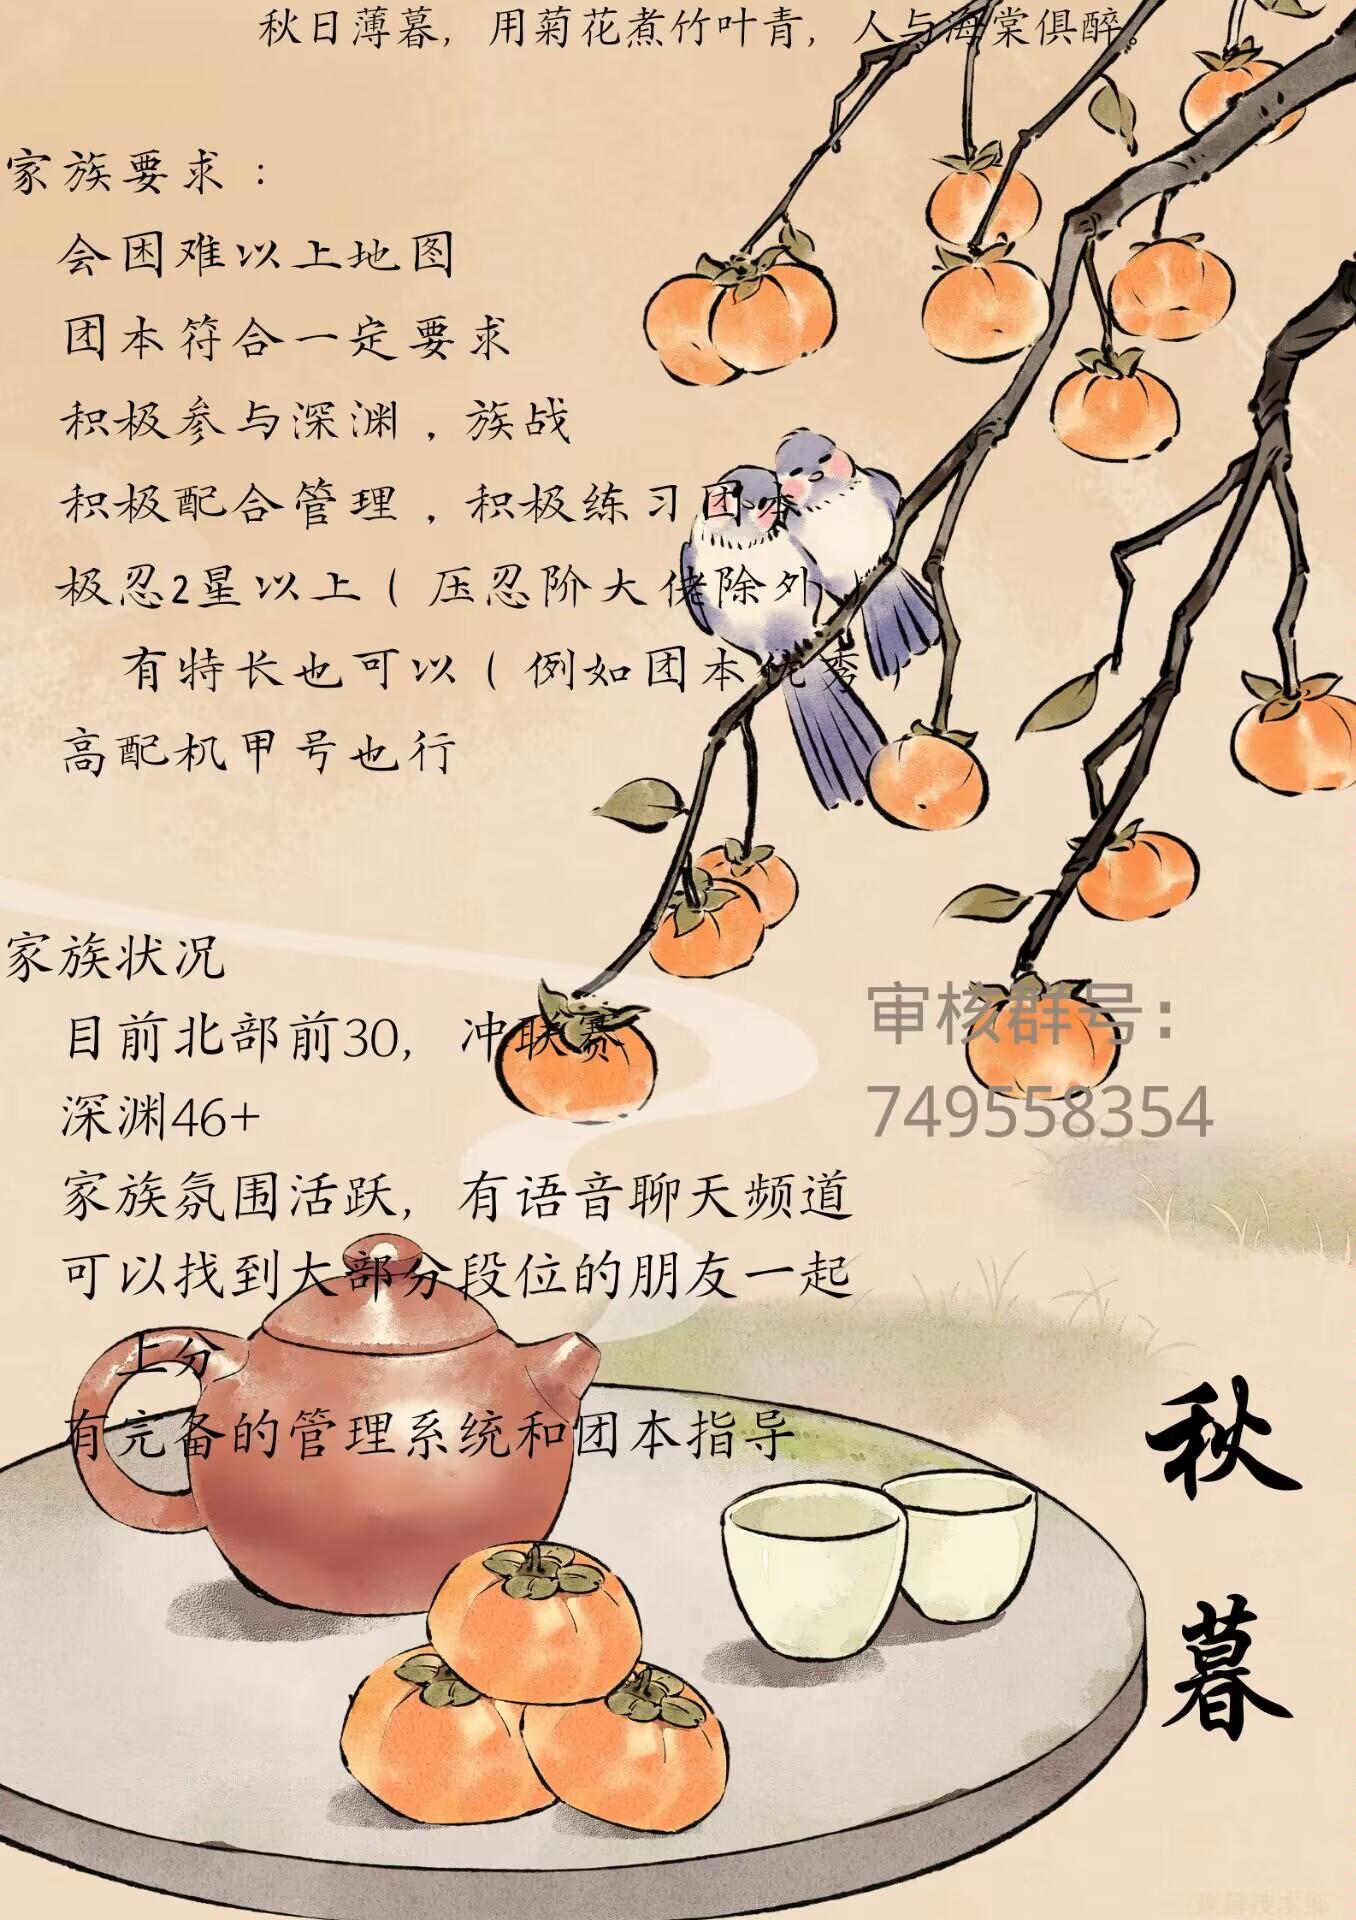 秋日薄暮，用菊花煮竹叶青，人与海棠俱醉。
家族要求：
会困难以上地图
团本符合一定要求
积极参与深渊，族战
积极配合管理，积极练习团本
极忍2星以上（压忍阶大佬除外）
有特长也可以（例如团本优秀）
高配机甲号也行
家族状况
目前北部前30，冲联赛
深渊46+
家族氛围活跃，有语音聊天频道
可以找到大部分段位的朋友一起
上分
有完备的管理系统和团本指导
审核群号：
749558354
秋
暮